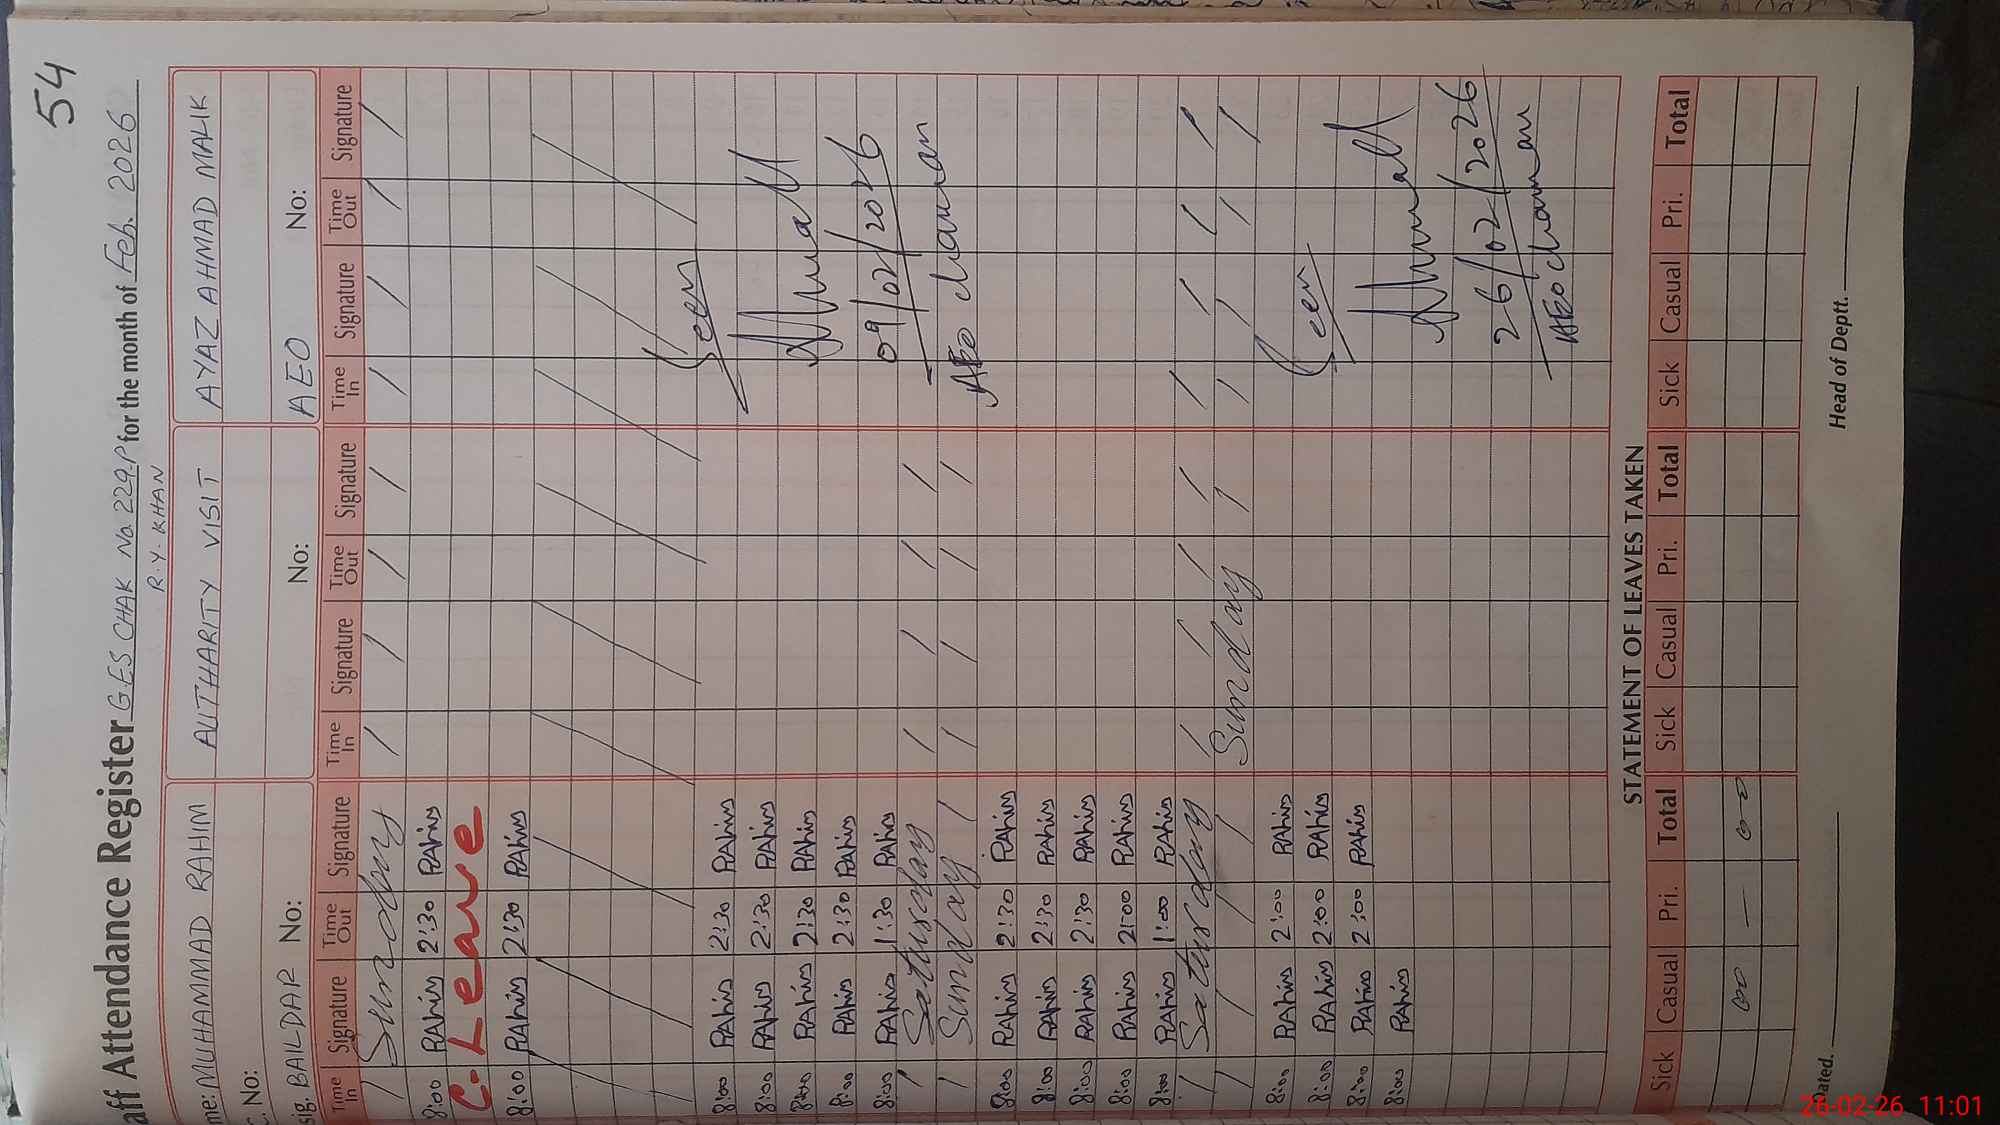 54
aff Attendance Register GES CHAK No. 229P for the month of Feb. 2026
R.Y. KHAN
me: MUHAMMAD RAHIM
AUTHARITY VISIT
AYAZ AHMAD MALIK
C. No:
sig. BAILDAR No:
No:
AEO No:
Time In Signature Time Out Signature Time In Signature Time Out Signature Time In Signature Time Out Signature
Sunday
8:00 RAhim 2:30 RAhim
C. Leave
8:00 RAhim 2:30 RAhim
8:00 RAhim 2:30 RAhim
8:00 RAhim 2:30 RAhim
8:00 RAhim 2:30 RAhim
8:00 RAhim 2:30 RAhim
8:00 RAhim 1:30 RAhim
Saturday
Sunday
8:00 RAhim 2:30 RAhim
8:00 RAhim 2:30 RAhim
8:00 RAhim 2:30 RAhim
8:00 RAhim 2:00 RAhim
8:00 RAhim 1:00 RAhim
Saturday
Sunday
8:00 RAhim 2:00 RAhim
8:00 RAhim 2:00 RAhim
8:00 RAhim 2:00 RAhim
8:00 RAhim
Seen
09/02/2026
AEO chaman
Seen
26/02/2026
AEO chaman
STATEMENT OF LEAVES TAKEN
Sick Casual Pri. Total Sick Casual Pri. Total Sick Casual Pri. Total
ated.
Head of Deptt.
26-02-26 11:01